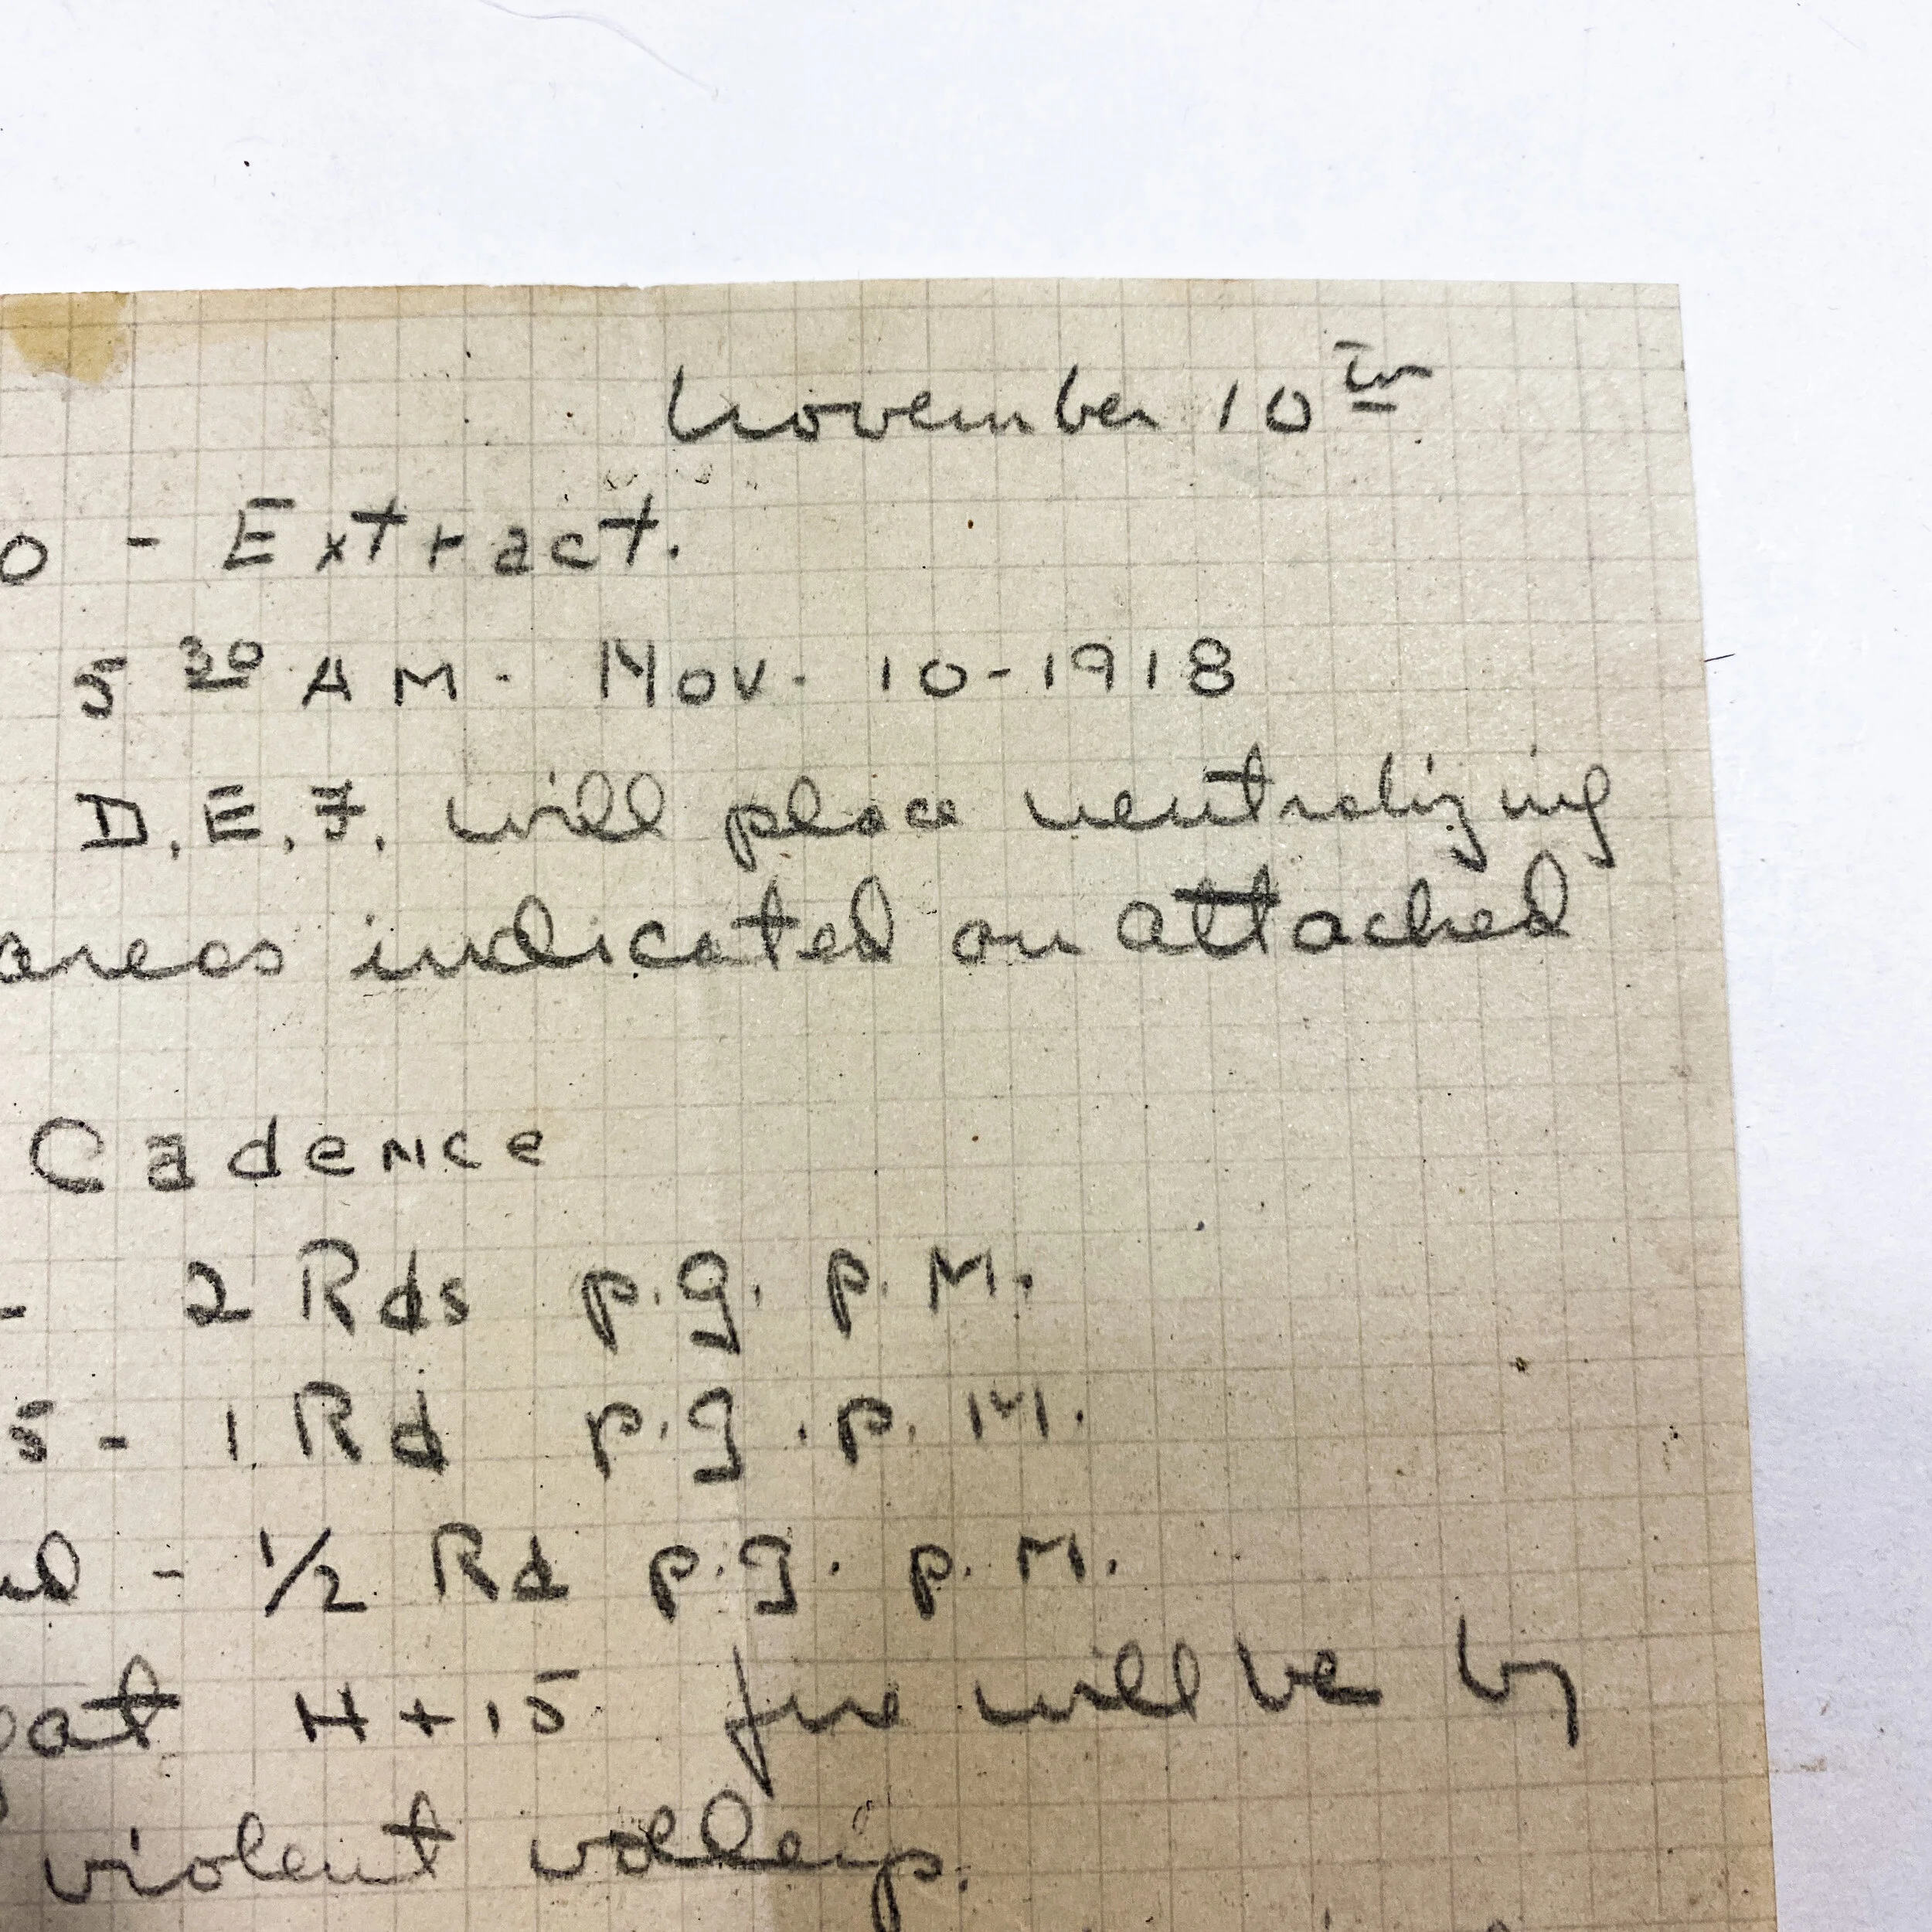 November 10th
0 - Extract.
5 30 AM. Nov. 10-1918
D, E, F, will place neutralizing
areas indicated on attached
Cadence
- 2 Rds p.g. p.M.
5 - 1 Rd p.g. p.M.
- 1/2 Rd p.g. p.M.
H+15 fire will be by
violent volleys.